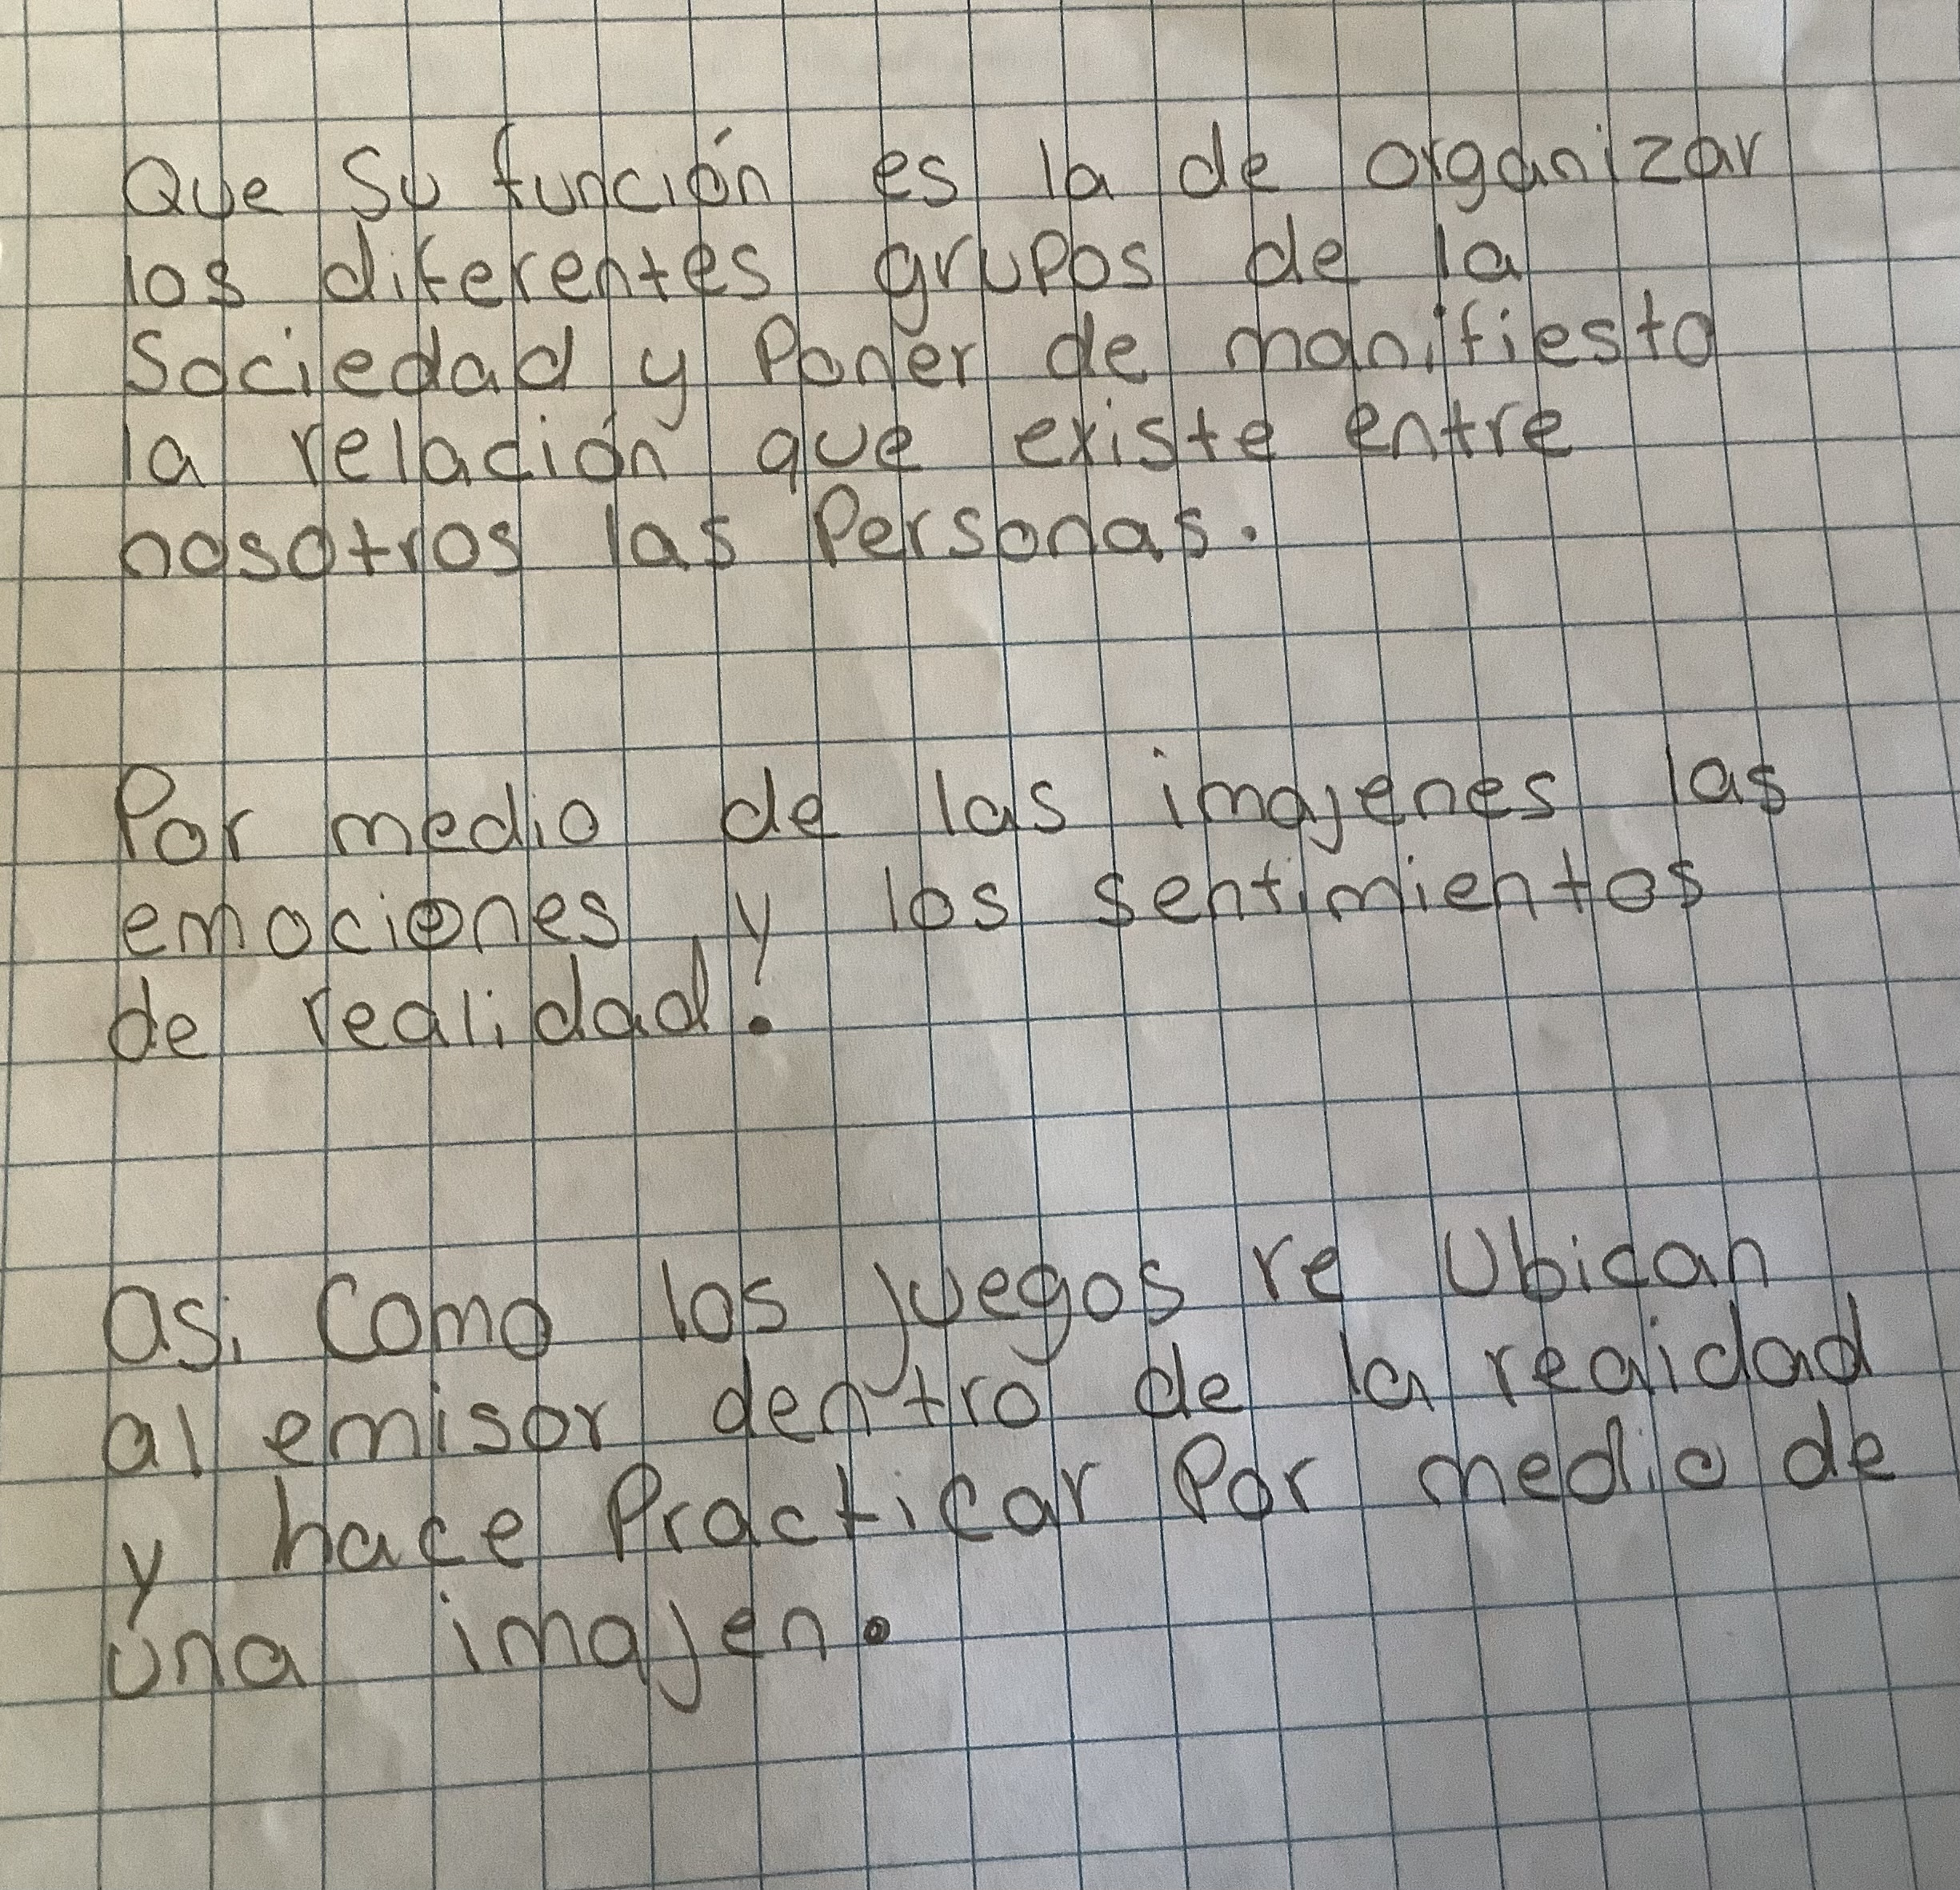 Que Su función es la de organizar
los diferentes grupos de la
Sociedad y Poner de manifiesto
la relación que existe entre
nosotros las Personas.
Por medio de las imajenes las
emociones y los sentimientos
de realidad.
asi Como los juegos re Ubican
al emisor dentro de la reaidad
y hace Practicar Por medio de
una imajen.